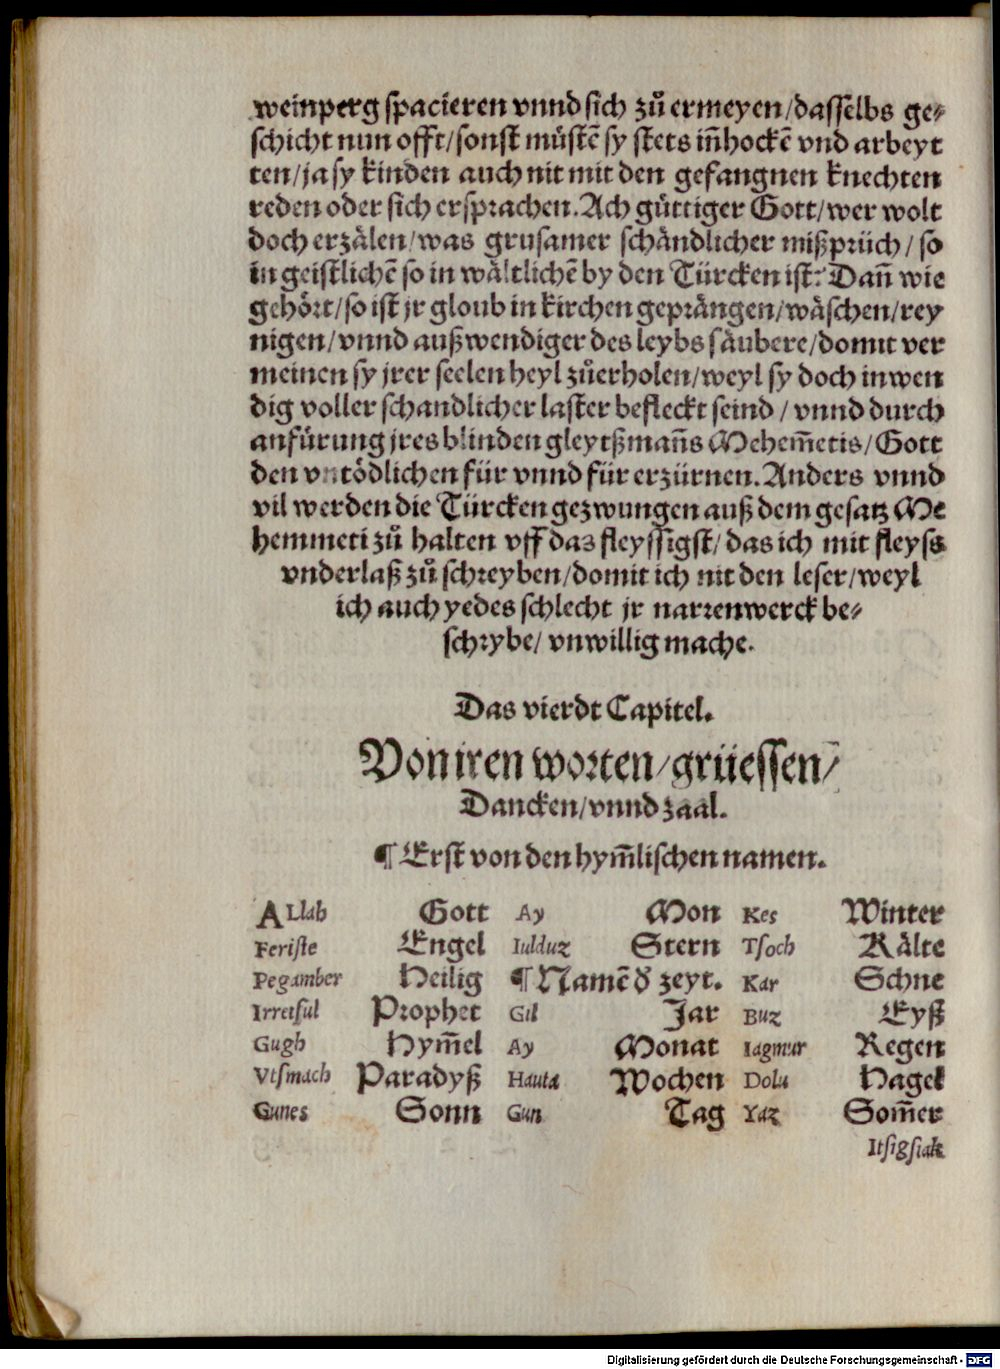 weinperg spacieren vnnd sich zů ermeyen/dasselbs ge⸗
schicht nun offt/sonst müstē sy stets iñhockē vnd arbeyt
ten/ja sy kinden auch nit mit den gefangnen knechten
reden oder sich ersprachen. Ach güttiger Gott/wer wolt
doch erzälen/was grusamer schändlicher mißprüch/so
in geistlichē so in wältlichē by den Türcken ist: Dañ wie
gehört/so ist jr gloub in kirchen geprängen/wäschen/rey
nigen/vnnd außwendiger des leybs säubere/domit ver
meinen sy jrer seelen heyl zůerholen/weyl sy doch inwen
dig voller schandlicher laster befleckt seind/vnnd durch
anfürung jres blinden gleytßmañs Mehem̄etis/Gott
den vntödlichen für vnnd für erzürnen. Anders vnnd
vil werden die Türcken gezwungen auß dem gesatz Me
hemmeti zů halten vff das fleyssigst/das ich mit fleyss
vnderlaß zů schreyben/domit ich nit den leser/weyl
ich auch yedes schlecht jr narrenwerck be⸗
schrybe/vnwillig mache.
Das vierdt Capitel.
Von iren worten/grüessen/
Dancken/vnnd zaal.
¶ Erst von den hym̄lischen namen.
ALlah Gott Ay Mon Kes Winter
Feriste Engel Iulduz Stern Tsoch Kälte
Pegamber Heilig ¶ Namē d̓ zeyt. Kar Schne
Irreisul Prophet Gil Jar Buz Eyß
Gugh Hym̄el Ay Monat Iagmur Regen
Vtsmach Paradyß Hauta Wochen Dolu Hagel
Gunes Sonn Gun Tag Yaz Som̄er
Itsigsiak
Digitalisierung gefördert durch die Deutsche Forschungsgemeinschaft - DFG